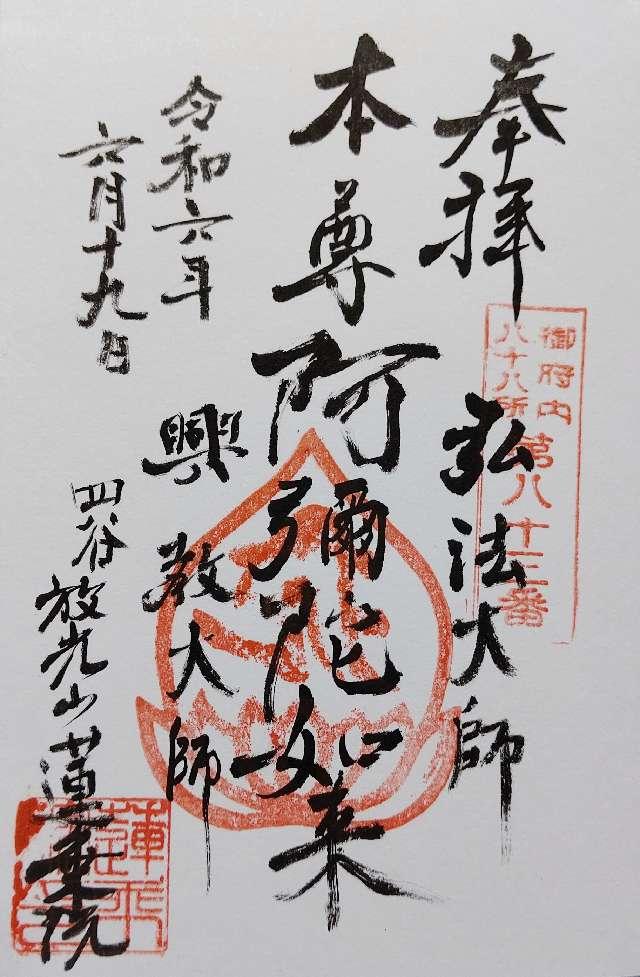 奉拝
御府内
八十八所
第八十三番
弘法大師
本尊
阿彌陀如来
興教大師
令和六年
六月十九日
四谷放光山蓮乗院